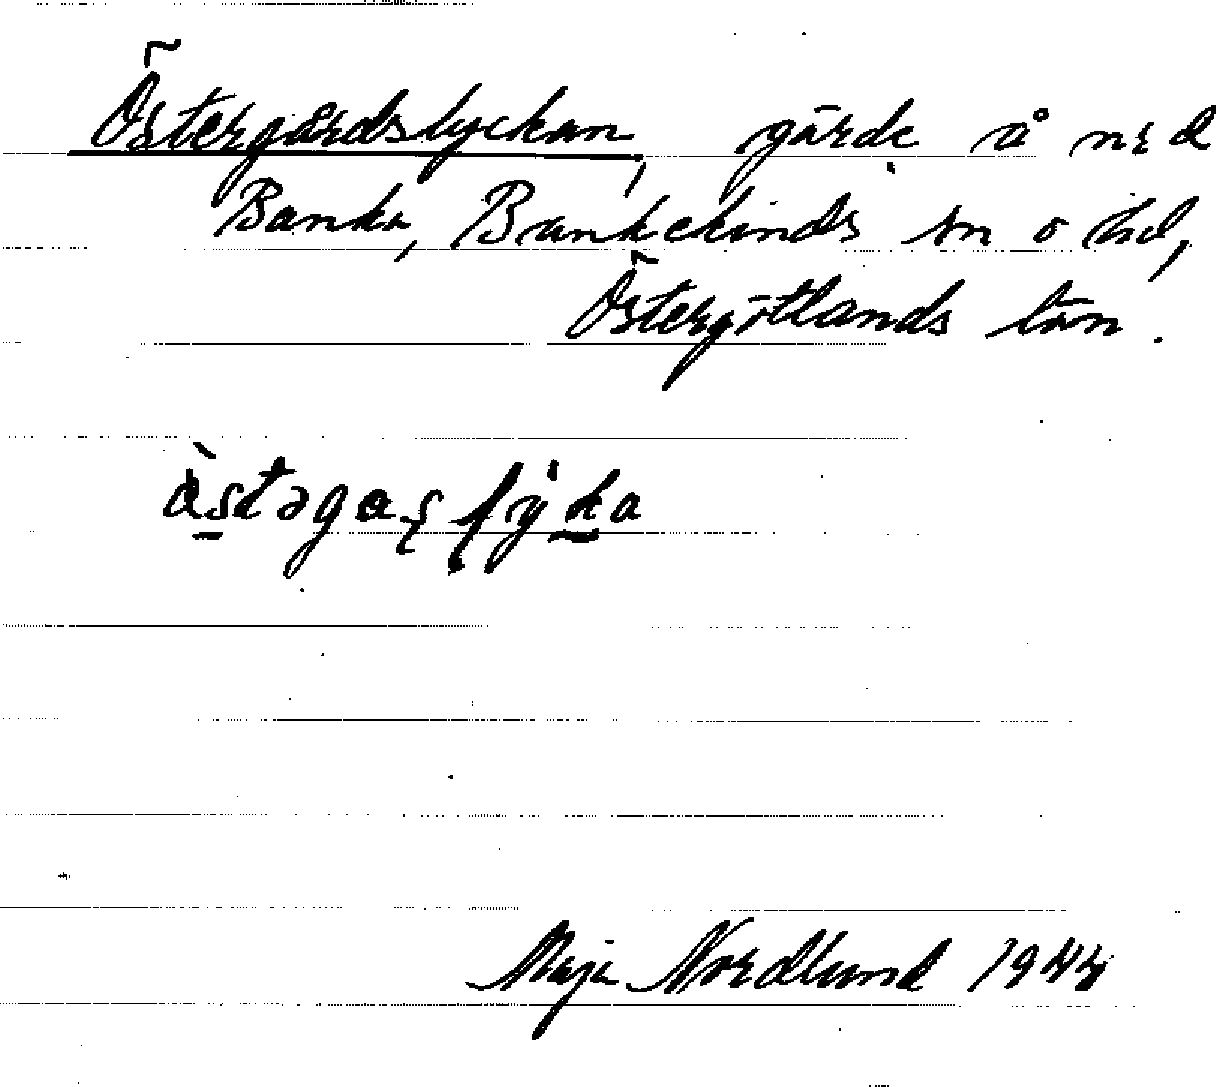 Östergårdslyckan, gärde å nr 2
Banka, Bankekinds sn o hd,
Östergötlands län.
Maja Nordlund 1944